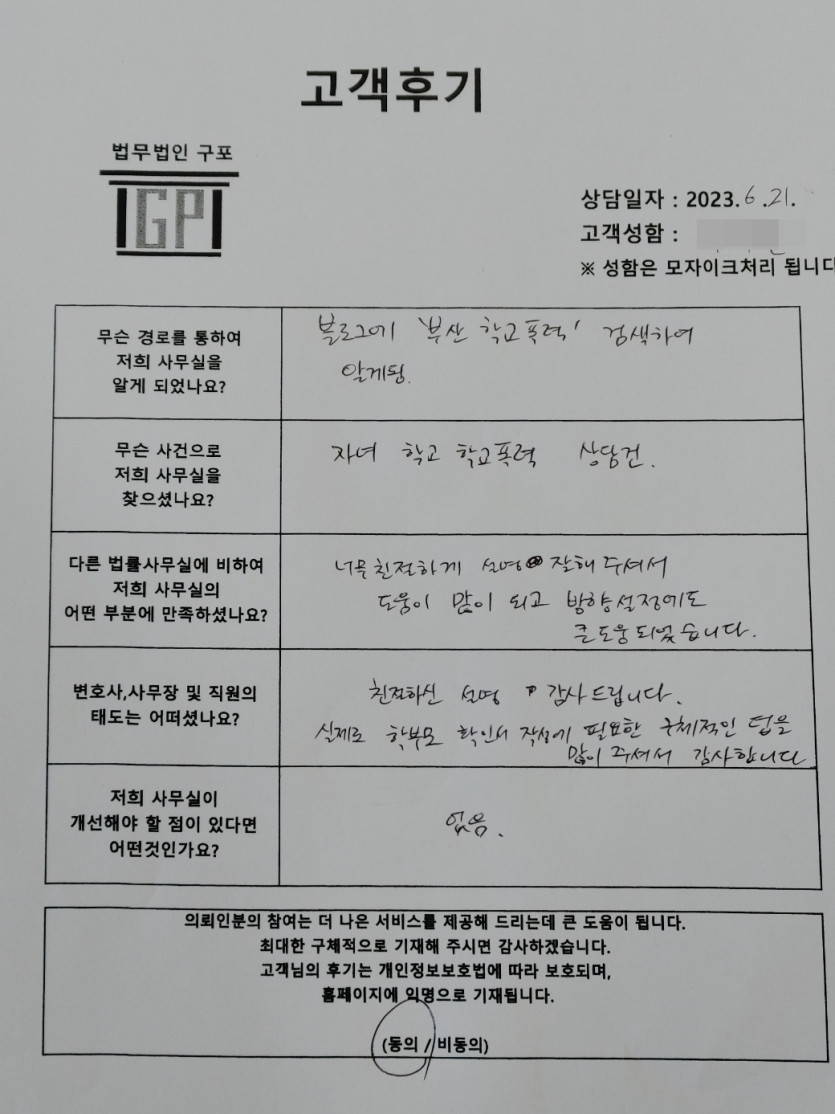 고객후기
법무법인 구포
GP
상담일자 : 2023.6.21.
고객성함 :
※ 성함은 모자이크처리 됩니다
무슨 경로를 통하여
저희 사무실을
알게 되었나요?
블로그에 '부산 학교폭력' 검색하여
알게됨.
무슨 사건으로
저희 사무실을
찾으셨나요?
자녀 학교 학교폭력 상담건.
다른 법률사무실에 비하여
저희 사무실의
어떤 부분에 만족하셨나요?
너무 친절하게 설명 잘해 주셔서
도움이 많이 되고 방향설정에도
큰 도움 되었습니다.
변호사,사무장 및 직원의
태도는 어떠셨나요?
친절하신 설명 감사드립니다.
실제로 학부모 확인서 작성에 필요한 구체적인 팁을
많이 주셔서 감사합니다
저희 사무실이
개선해야 할 점이 있다면
어떤것인가요?
없음.
의뢰인분의 참여는 더 나은 서비스를 제공해 드리는데 큰 도움이 됩니다.
최대한 구체적으로 기재해 주시면 감사하겠습니다.
고객님의 후기는 개인정보보호법에 따라 보호되며,
홈페이지에 익명으로 기재됩니다.
(동의 / 비동의)